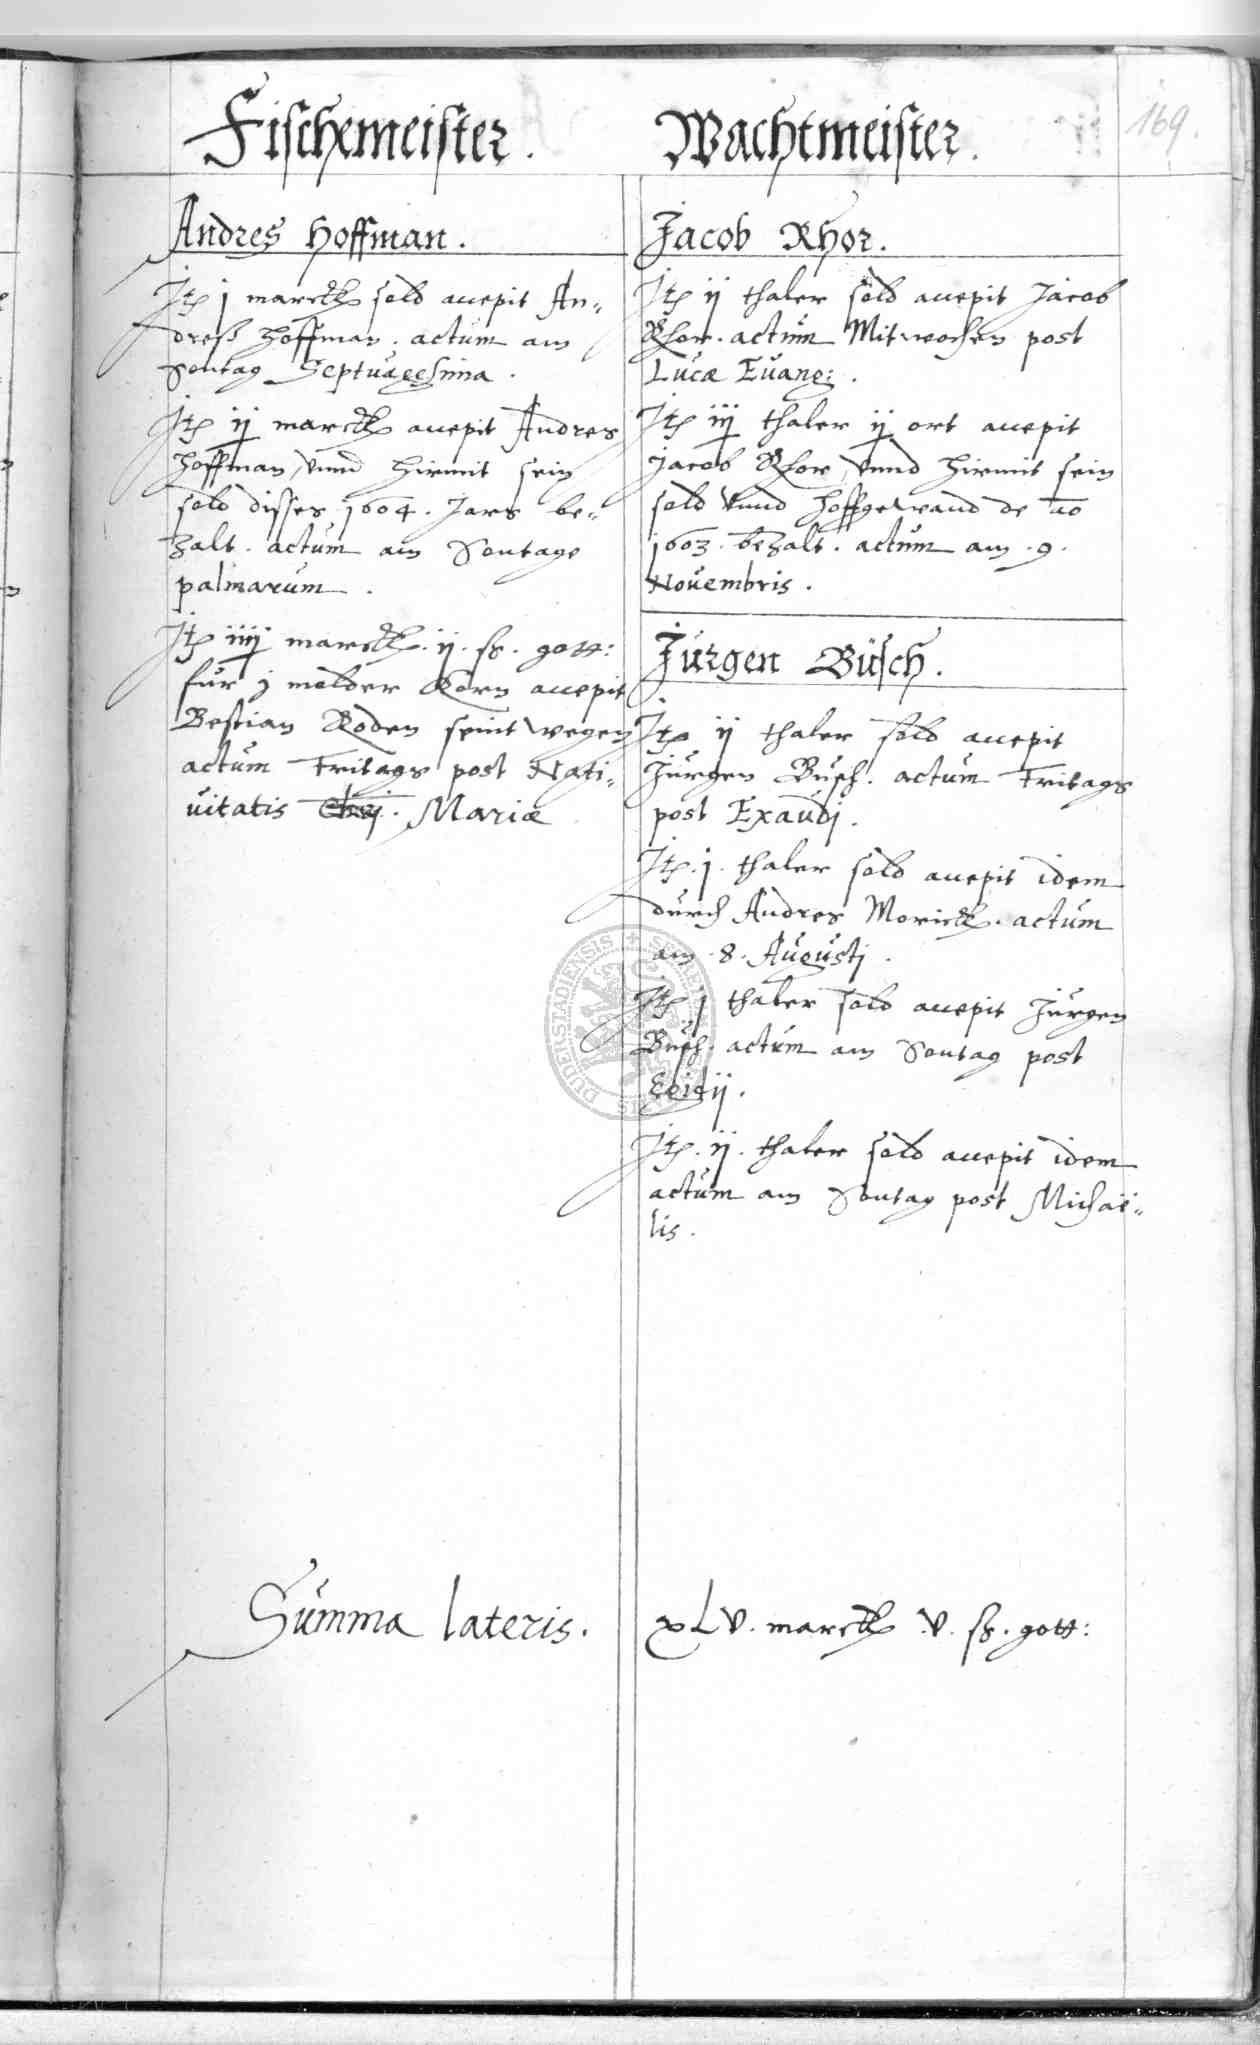 169.
Fischemeister.
Andres Hoffman.
Itē j marck sold accepit An-
dreß Hoffman. actum am
Sontag Septuagesima.
Itē ij marck accepit Andres
Hoffman, vnnd hirmit sein
sold disses 1604. Jars be-
zalt. actum am Sontage
palmarum.
Itē iiij marck. ij. ß. gott:
für j molder Korn accepit
Bestian Roden seint wegen
actum Fritags post Nati-
uitatis Chrj. Mariæ
Wachtmeister.
Jacob Rhor.
Itē ij thaler sold accepit Jacob
Rhor. actum Mitwochen post
Lucæ Euang:.
Itē iij thaler ij ort accepit
Jacob Rhor, vnnd hirmit sein
sold vnnd hoffgewand de ao
1603. bezalt. actum am .9.
Nouembris.
Jürgen Büsch.
Itē ij thaler sold accepit
Jürgen Busch. actum Fritags
post Exaudj.
Itē. j. thaler sold accepit idem
durch Andres Morick. actum
am .8. Augustj.
Itē j thaler sold accepit Jürgen
Busch. actum am Sontag post
Egidij.
Itē. ij. thaler sold accepit idem
actum am Sontag post Michaë-
lis.
Summa lateris. xLv. marck .v. ß. gott: